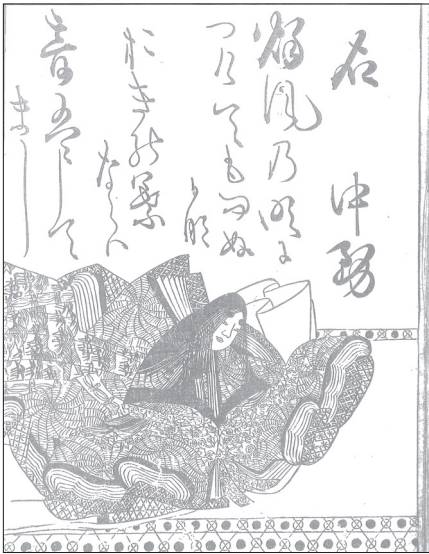 右 中務
秋風乃吹に
つけても問ぬ
か那
おき能葉
ならハ
音ハして
まし